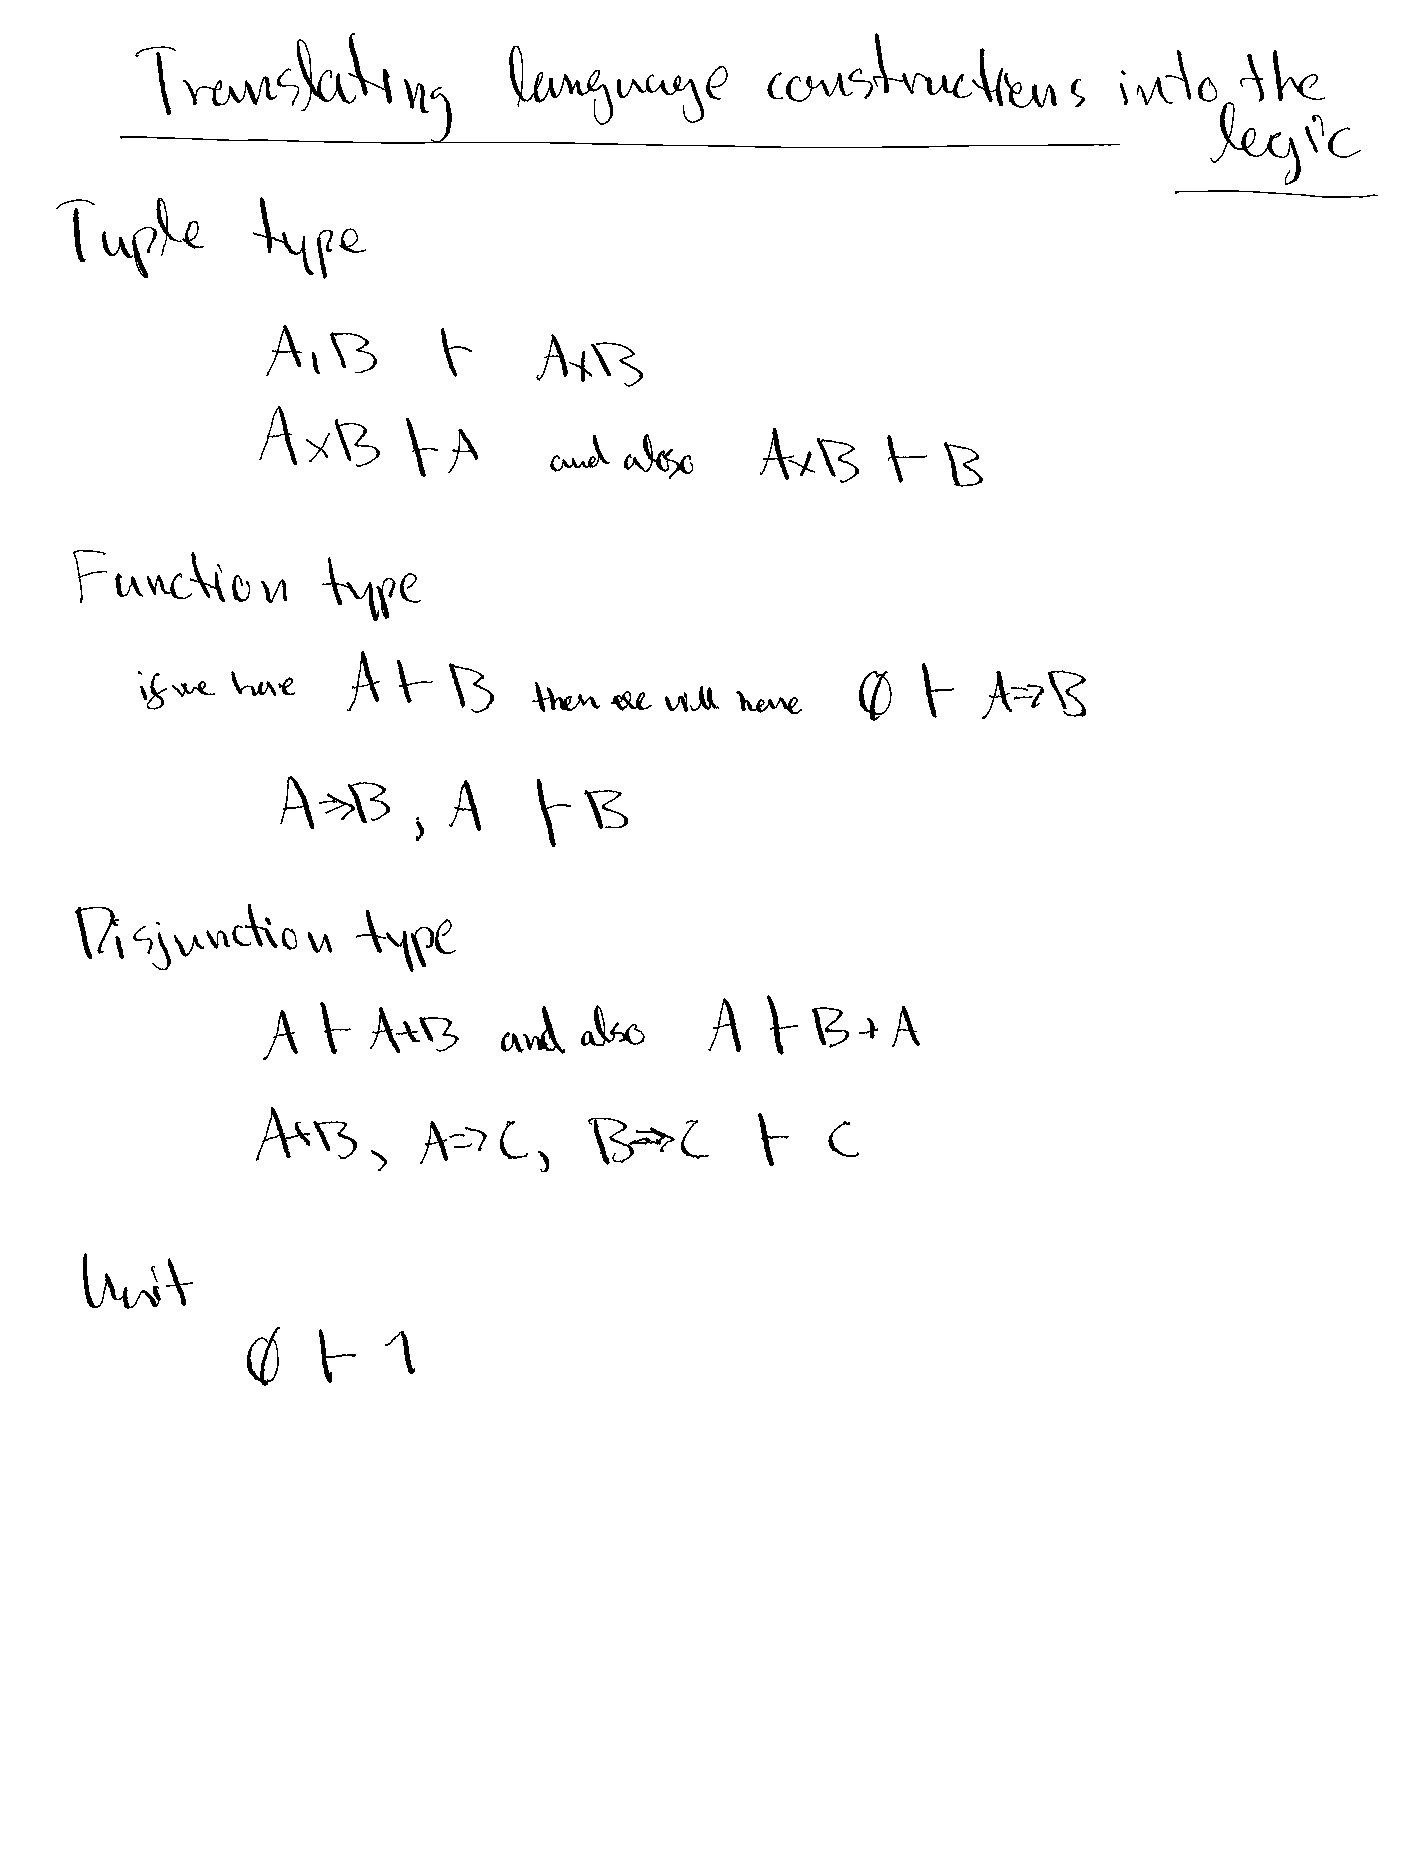 Translating language constructions into the
logic
Tuple type
A, B ⊢ A×B
A×B ⊢ A and also A×B ⊢ B
Function type
if we have A ⊢ B then we will have ∅ ⊢ A⇒B
A⇒B, A ⊢ B
Disjunction type
A ⊢ A+B and also A ⊢ B+A
A+B, A⇒C, B⇒C ⊢ C
Unit
∅ ⊢ 1